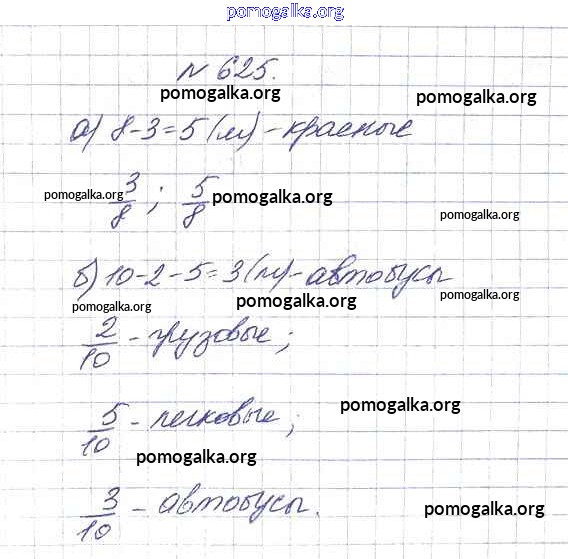 pomogalka.org
N 625.
pomogalka.org pomogalka.org
а) 8-3=5 (м) - красные
pomogalka.org 3/8 ; 5/8 pomogalka.org pomogalka.org
б) 10-2-5=3 (м) - автобусы
pomogalka.org pomogalka.org pomogalka.org
2/10 - грузовые;
pomogalka.org
5/10 - легковые;
pomogalka.org
3/10 - автобусы.
pomogalka.org